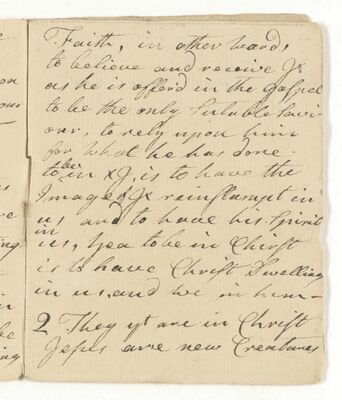 Faith, in other words,
to believe and receive Jx
as he is offerd in the Gospel
to be the only Sutable Savi-
our, to rely upon him
for what he has done
to be in xJ, is to have the
Image of Jx reinstampt in
us and to have his Spirit
in us, yea to be in Christ
is to have Christ Dwelling
in us, and we in him—
2 They yt are in Christ
Jesus are new Creatures
on
our
ing
be
ing